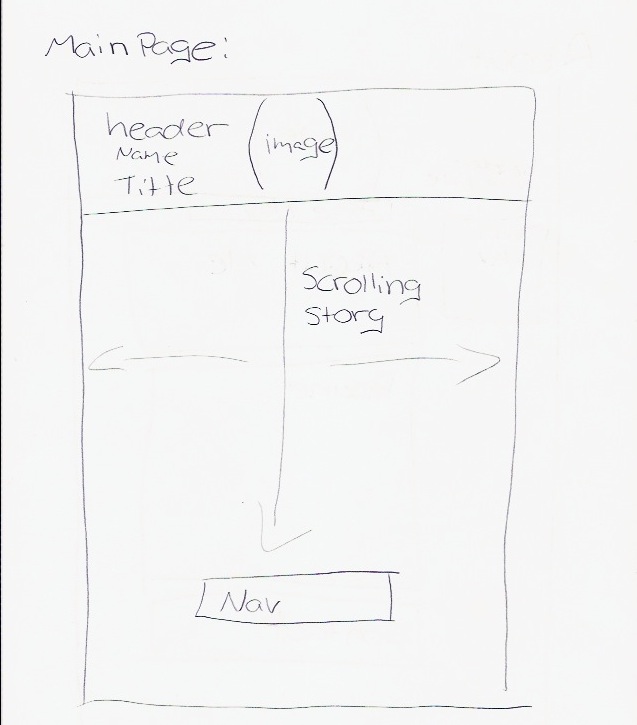 Main Page:
header
Name
Title
image
Scrolling
Story
Nav